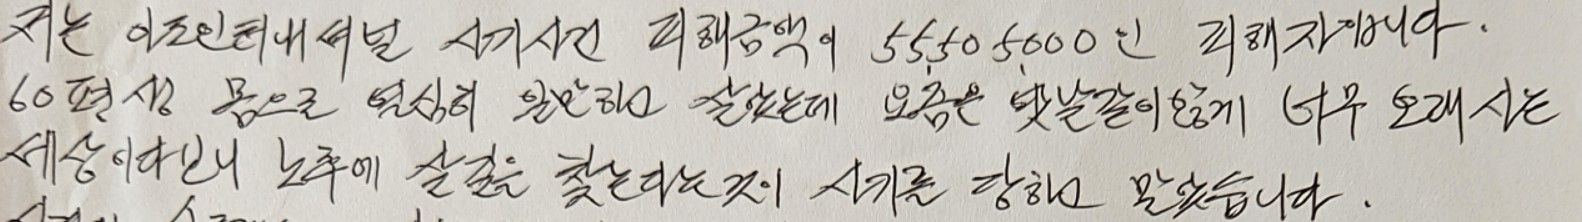 저는 이조인터내셔널 사기사건 피해금액이 55,505,000인 피해자입니다.
60평생 몸으로 열심히 일만하고 살았는데 요즘은 옛날같이않게 너무 오래 사는
세상이다보니 노후에 살길은 찾는다는것이 사기를 당하고 말았습니다.